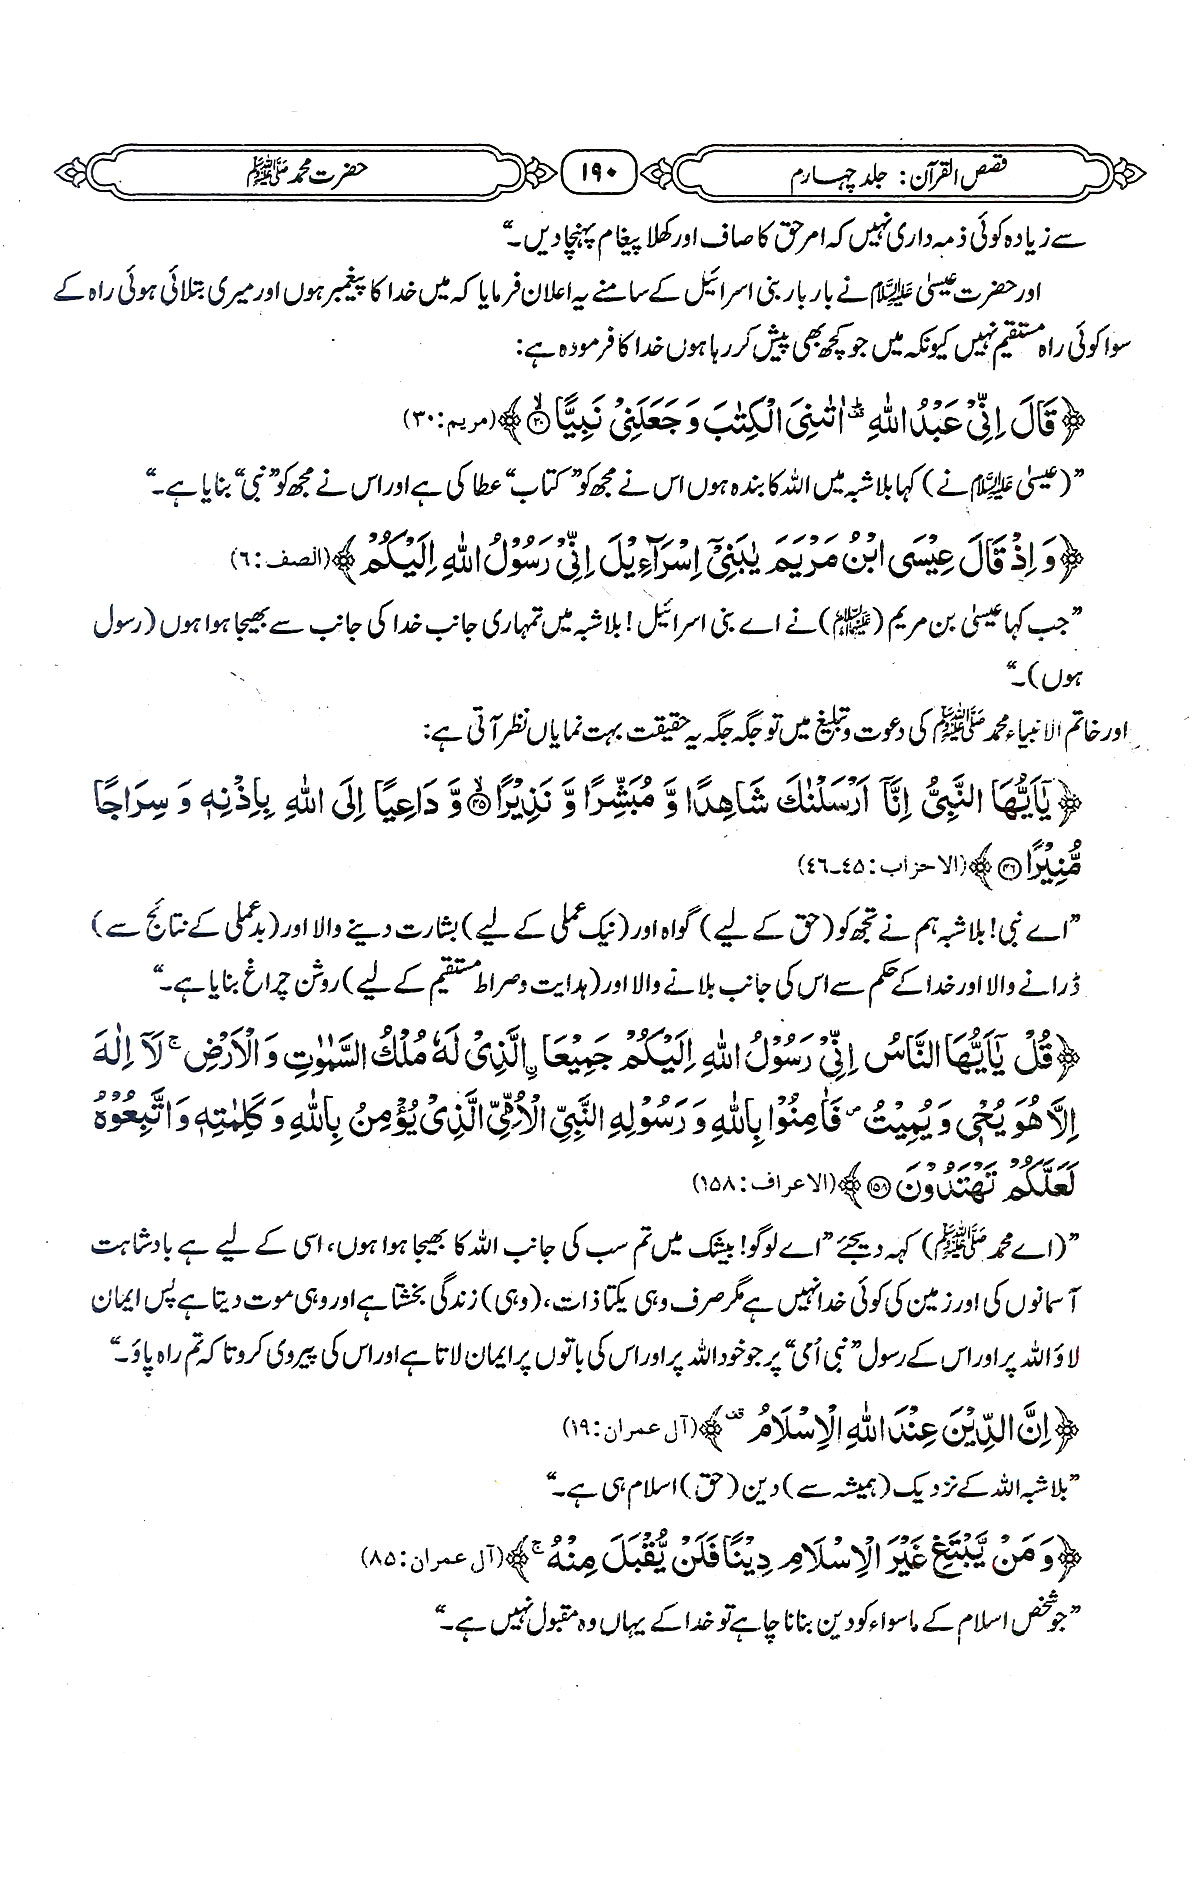 قصص القرآن: جلد چہارم
۱۹۰
حضرت محمد ﷺ
سے زیادہ کوئی ذمہ داری نہیں کہ امر حق کا صاف اور کھلا پیغام پہنچا دیں۔“
اور حضرت عیسیٰ علیہ السلام نے بار بار بنی اسرائیل کے سامنے یہ اعلان فرمایا کہ میں خدا کا پیغمبر ہوں اور میری بتلائی ہوئی راہ کے
سوا کوئی راہ مستقیم نہیں کیونکہ میں جو کچھ بھی پیش کر رہا ہوں خدا کا فرمودہ ہے:
﴿قَالَ اِنِّیْ عَبْدُ اللّٰهِ ؕ۫ اٰتٰىنِیَ الْكِتٰبَ وَ جَعَلَنِیْ نَبِیًّا ۙ۝۳۰﴾ (مریم: ۳۰)
”(عیسیٰ علیہ السلام نے) کہا بلاشبہ میں اللہ کا بندہ ہوں اس نے مجھ کو ”کتاب“ عطا کی ہے اور اس نے مجھ کو ”نبی“ بنایا ہے۔“
﴿وَ اِذْ قَالَ عِیْسَى ابْنُ مَرْیَمَ یٰبَنِیْۤ اِسْرَآءِیْلَ اِنِّیْ رَسُوْلُ اللّٰهِ اِلَیْكُمْ﴾ (الصف: ٦)
”جب کہا عیسیٰ بن مریم (علیہما السلام) نے اے بنی اسرائیل! بلاشبہ میں تمہاری جانب خدا کی جانب سے بھیجا ہوا ہوں (رسول
ہوں)۔“
اور خاتم الانبیاء محمد ﷺ کی دعوت و تبلیغ میں تو جگہ جگہ یہ حقیقت بہت نمایاں نظر آتی ہے:
﴿یٰۤاَیُّهَا النَّبِیُّ اِنَّاۤ اَرْسَلْنٰكَ شَاهِدًا وَّ مُبَشِّرًا وَّ نَذِیْرًا ۙ۝۴۵ وَّ دَاعِیًا اِلَى اللّٰهِ بِاِذْنِهٖ وَ سِرَاجًا
مُّنِیْرًا ۝۴۶﴾ (الاحزاب: ٤٥۔٤٦)
”اے نبی! بلاشبہ ہم نے تجھ کو (حق کے لیے) گواہ اور (نیک عملی کے لیے) بشارت دینے والا اور (بدعملی کے نتائج سے)
ڈرانے والا اور خدا کے حکم سے اس کی جانب بلانے والا اور (ہدایت و صراط مستقیم کے لیے) روشن چراغ بنایا ہے۔“
﴿قُلْ یٰۤاَیُّهَا النَّاسُ اِنِّیْ رَسُوْلُ اللّٰهِ اِلَیْكُمْ جَمِیْعَا ِ۟الَّذِیْ لَهٗ مُلْكُ السَّمٰوٰتِ وَ الْاَرْضِ ۚ لَاۤ اِلٰهَ
اِلَّا هُوَ یُحْیٖ وَ یُمِیْتُ ۪ فَاٰمِنُوْا بِاللّٰهِ وَ رَسُوْلِهِ النَّبِیِّ الْاُمِّیِّ الَّذِیْ یُؤْمِنُ بِاللّٰهِ وَ كَلِمٰتِهٖ وَ اتَّبِعُوْهُ
لَعَلَّكُمْ تَهْتَدُوْنَ ۝۱۵۸﴾ (الاعراف: ۱۵۸)
”(اے محمد ﷺ) کہہ دیجئے ”اے لوگو! بیشک میں تم سب کی جانب اللہ کا بھیجا ہوا ہوں، اسی کے لیے ہے بادشاہت
آسمانوں کی اور زمین کی کوئی خدا نہیں ہے مگر صرف وہی یکتا ذات، (وہی) زندگی بخشتا ہے اور وہی موت دیتا ہے پس ایمان
لاؤ اللہ پر اور اس کے رسول ”نبی اُمی“ پر جو خود اللہ پر اور اس کی باتوں پر ایمان لاتا ہے اور اس کی پیروی کرو تا کہ تم راہ پاؤ۔“
﴿اِنَّ الدِّیْنَ عِنْدَ اللّٰهِ الْاِسْلَامُ ۫﴾ (آل عمران: ۱۹)
”بلاشبہ اللہ کے نزدیک (ہمیشہ سے) دین (حق) اسلام ہی ہے۔“
﴿وَ مَنْ یَّبْتَغِ غَیْرَ الْاِسْلَامِ دِیْنًا فَلَنْ یُّقْبَلَ مِنْهُ ۚ﴾ (آل عمران: ۸۵)
”جو شخص اسلام کے ماسواء کو دین بنانا چاہے تو خدا کے یہاں وہ مقبول نہیں ہے۔“